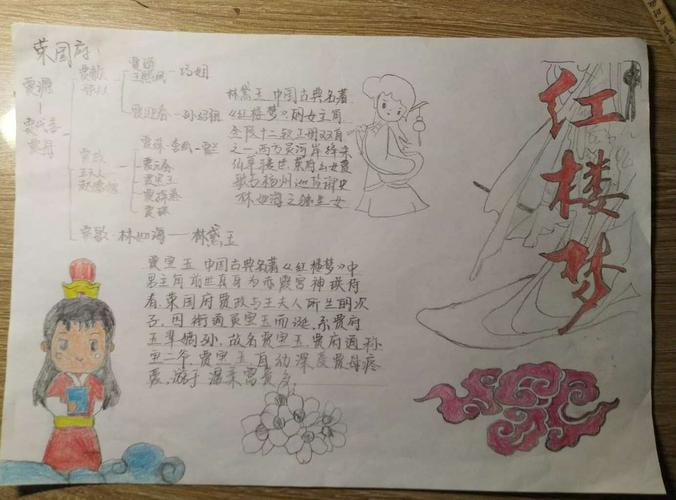 荣国府:
贾源
贾代善
贾母
贾赦
贾琏
王熙凤 — 巧姐
贾迎春 — 孙绍祖
贾政
王夫人
贾元春
贾宝玉
贾探春
贾环
贾敏 林如海 — 林黛玉
林黛玉 中国古典名著
《红楼梦》的女主角
金陵十二钗正册双首
之一,西方灵河岸绛朱
仙草
林如海之独生女
贾宝玉 中国古典名著《红楼梦》中
男主角 前世真身为赤霞宫神瑛侍
者,荣国府贾政与王夫人所生的次
子,因衔通灵宝玉而诞,系贾府
玉辈嫡孙,故名贾宝玉,贾府通称
宝二爷,贾宝玉自幼深受贾母疼
爱
红楼梦